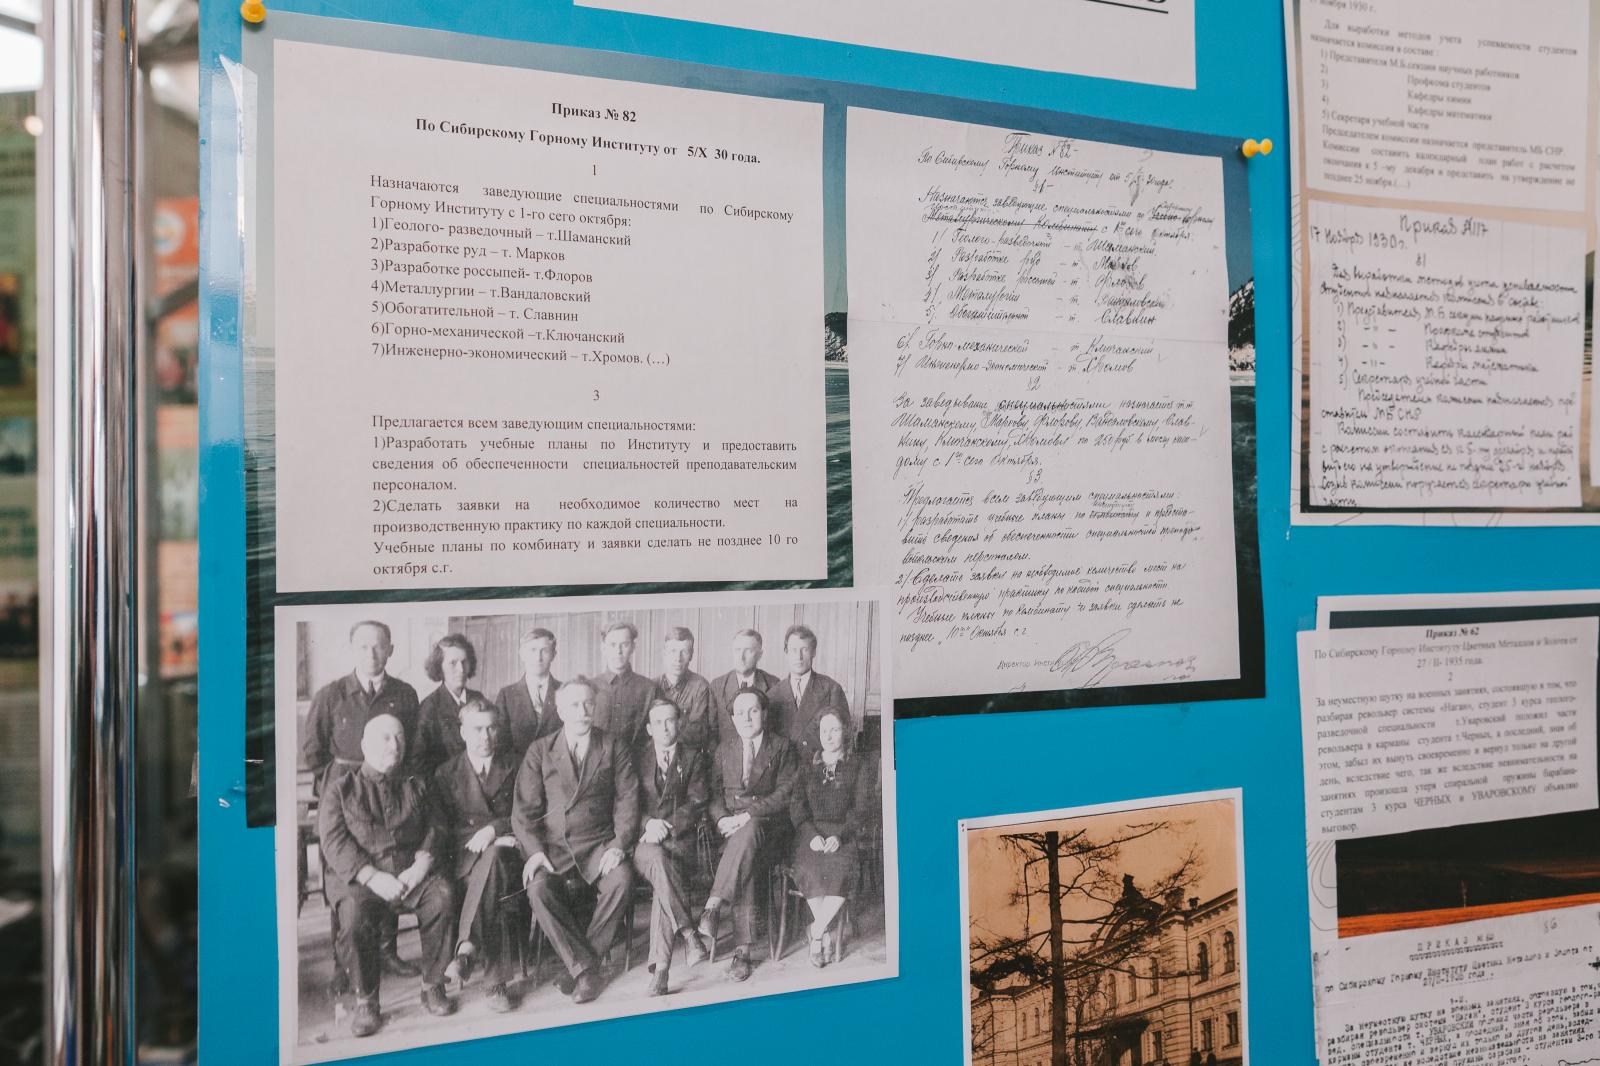 Приказ № 82
По Сибирскому Горному Институту от 5/X 30 года.
1
Назначаются заведующие специальностями по Сибирскому
Горному Институту с 1-го сего октября:
1)Геолого- разведочный – т.Шаманский
2)Разработке руд – т. Марков
3)Разработке россыпей- т.Флоров
4)Металлургии – т.Вандаловский
5)Обогатительной – т. Славнин
6)Горно-механической –т.Ключанский
7)Инженерно-экономический – т.Хромов. (…)
3
Предлагается всем заведующим специальностями:
1)Разработать учебные планы по Институту и предоставить
сведения об обеспеченности специальностей преподавательским
персоналом.
2)Сделать заявки на необходимое количество мест на
производственную практику по каждой специальности.
Учебные планы по комбинату и заявки сделать не позднее 10 го
октября с.г.
Приказ №82-
По Сибирскому Горному Институту от 5/X 30 года.
§1-
Назначаются заведующие специальностями по Горному
с 1го сего октября:
1/ Геолого-разведочной - т. Шаманский
2/ Разработке руд - т. Марков
3/ Разработке россыпей - т. Флоров
4/ Металургии - т.
5/ Обогатительной - т. Славнин
6/ Горно-механической - т. Ключанский
7/ Инженерно-экономической - т. Хромов
§2
За заведывание специальностями назначается т.т.
Шаманскому, Маркову, Флорову, Вандаловскому, Слав-
нину, Ключанскому, Хромову по 250 руб в месяц каж-
дому с 1го сего октября.
§3.
Предлагается всем заведующим специальностями:
1/ разработать учебные планы по институту и предоста-
вить сведения об обеспеченности специальностей препода-
вательским персоналом.
2/ Сделать заявки на необходимое количество мест на
производственную практику по каждой специальности
Учебные планы по комбинату и заявки сделать не
позднее "10го" Октября с.г.
Директор Инстит
ноября 1930 г.
Для выработки методов учета успеваемости студентов
назначается комиссия в составе :
1) Представителя М.Б.секции научных работников
2) Профкома студентов
3) Кафедры химии
4) Кафедры математики
5) Секретаря учебной части
Председателем комиссии назначается представитель МБ СНР.
Комиссии составить календарный план работ с расчетом
окончания к 5 –му декабря и представить на утверждение не
позднее 25 ноября.(…)
Приказ №117
17 Ноября 1930г.
§1
Для выработки методов учета успеваемости
студентов назначается комиссия в составе:
1) Представителя М.Б. секции научных работников
2) - " - Профкома студентов
3) Кафедры химии
4) -"- Кафедры математики
5) Секретаря учебной части
Председателем комиссии назначается пред-
ставитель МБ СНР
Комиссии составить календарный план раб
с расчетом окончания к 5-му декабря и предст
на утверждение не позднее 25-го ноября.
Созыв комиссии поручается секретарю учебной
части
Приказ № 62
По Сибирскому Горному Институту Цветных Металлов и Золота от
27 / II- 1935 года.
2
За неуместную шутку на военных занятиях, состоявшую в том, что
разбирая револьвер системы «Наган», студент 3 курса геолого-
разведочной специальности т.Уваровский положил части
револьвера в карманы студента т.Черных, а последний, зная об
этом, забыл их вынуть своевременно и вернул только на другой
день, вследствие чего, так же вследствие невнимательности на
занятиях произошла утеря спиральной пружины барабана-
студентам 3 курса ЧЕРНЫХ и УВАРОВСКОМУ объявляю
выговор.
§6
ПРИКАЗ №62
по Сибирскому Горному Институту Цветных Металлов и Золота от
27/II-1935 года
За неуместную шутку на военных занятиях, состоявшую в том,
разбирая револьвер системы "Наган", студент 3 курса геолого-ра
вед. специальности т. УВАРОВСКИЙ положил части револьвера в
карманы студента т. ЧЕРНЫХ, а последний, зная об этом, забыл